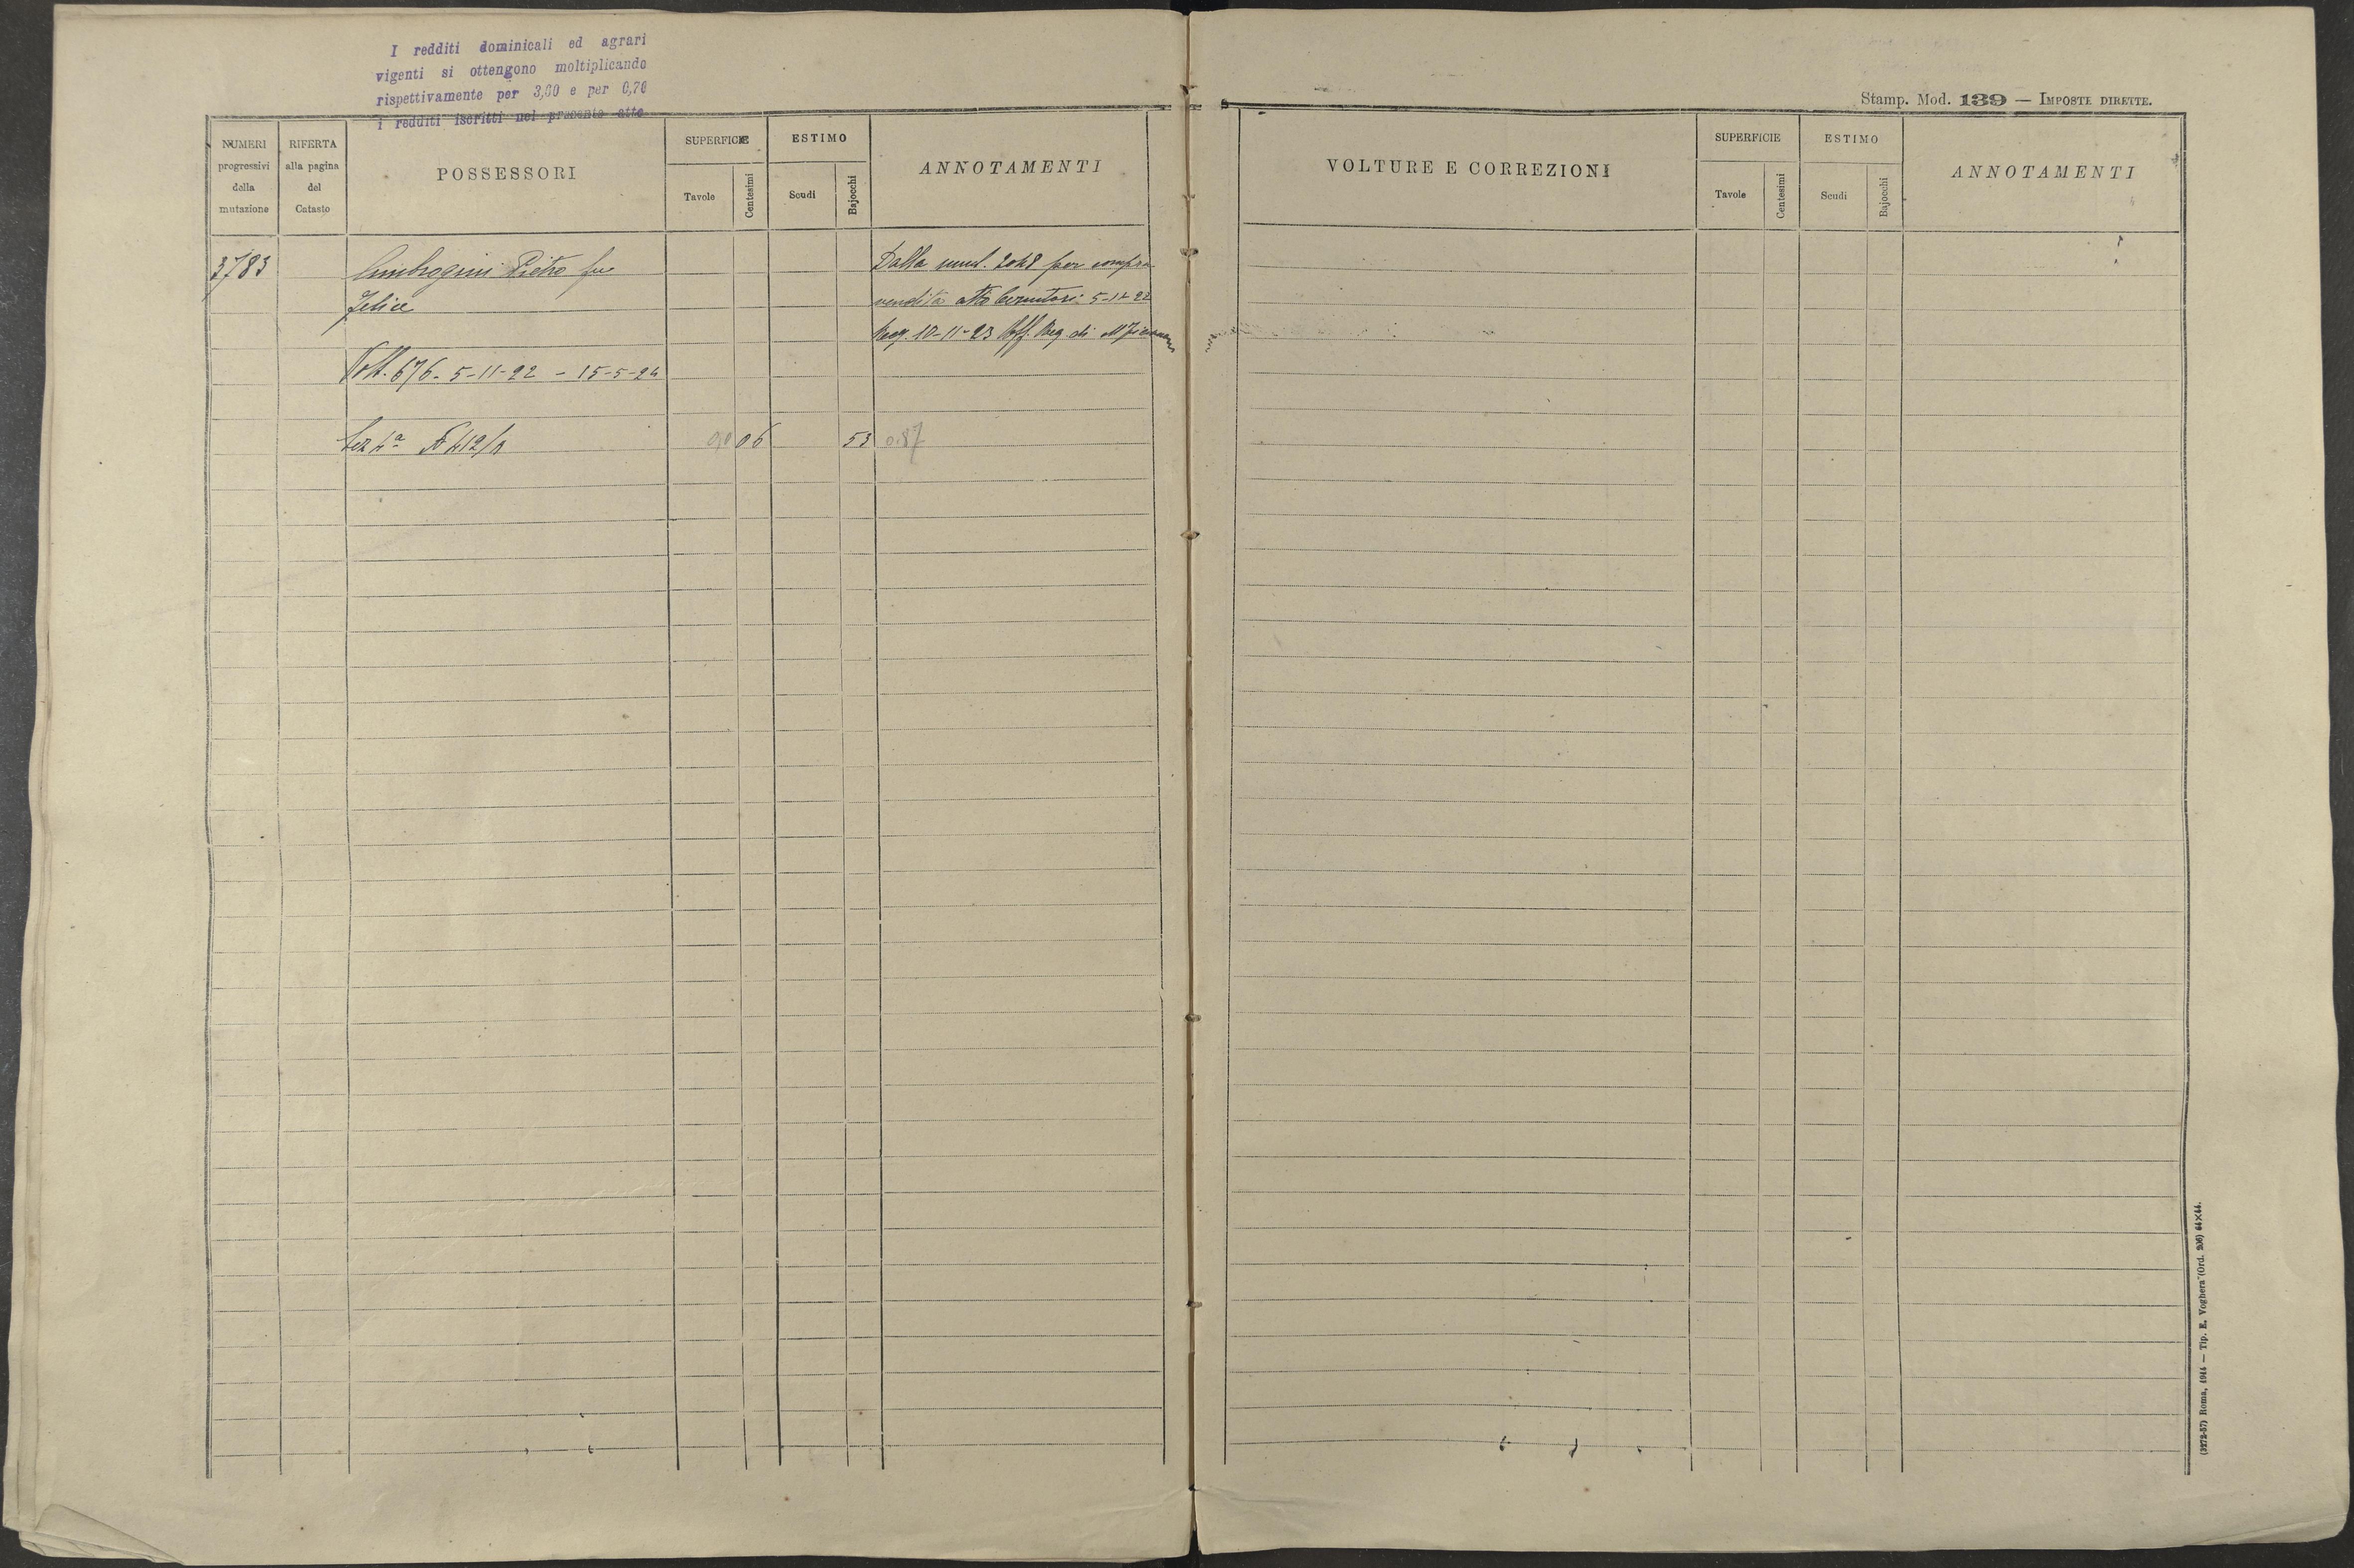 I redditi dominicali ed agrari
vigenti si ottengono moltiplicando
rispettivamente per 3,60 e per 0,76
i redditi iscritti nel presente atto
Stamp. Mod. 139 — IMPOSTE DIRETTE.
NUMERI
progressivi
della
mutazione
RIFERTA
alla pagina
del
Catasto
POSSESSORI
SUPERFICIE
Tavole
Centesimi
ESTIMO
Scudi
Bajocchi
ANNOTAMENTI
VOLTURE E CORREZIONI
SUPERFICIE
Tavole
Centesimi
ESTIMO
Scudi
Bajocchi
ANNOTAMENTI
3783
Ambrogini Pietro fu
Felice
Dalla 2048 per compra
vendita atto 5-11-22
Reg. 10-11-23 Uff. Reg di
Volt. 676 - 5-11-22 - 15-5-24
Sez 4ª N 412/
06
53
0.87
(3272-57) Roma, 1914 — Tip. E. Voghera (Ord. 206) 64×44.